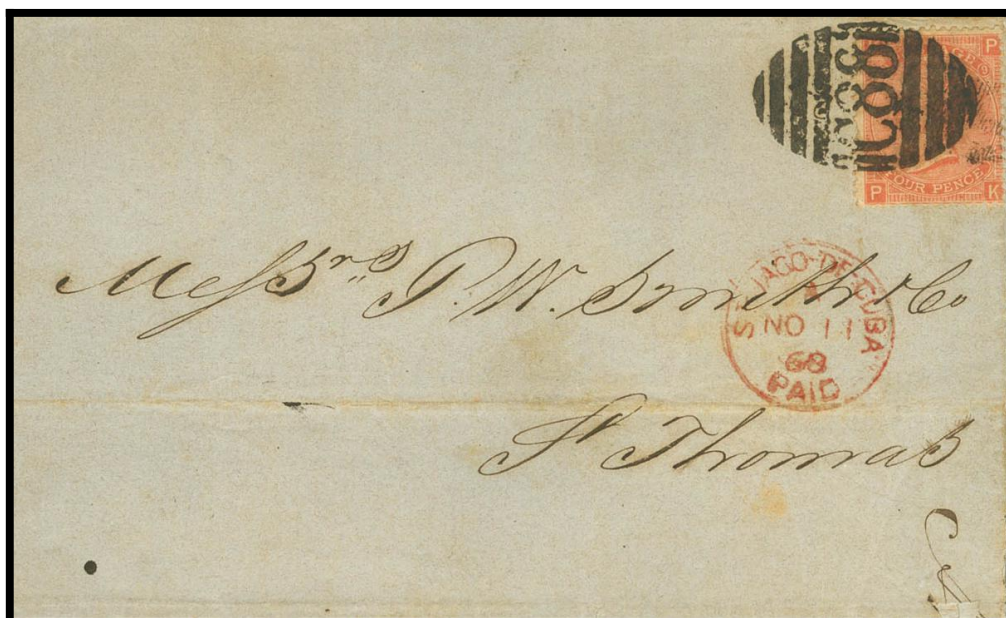 C88
P
FOUR PENCE
P K
Messrs. P. W. Smith & Co
ST JAGO-DE-CUBA
NO 11
68
PAID
St Thomas